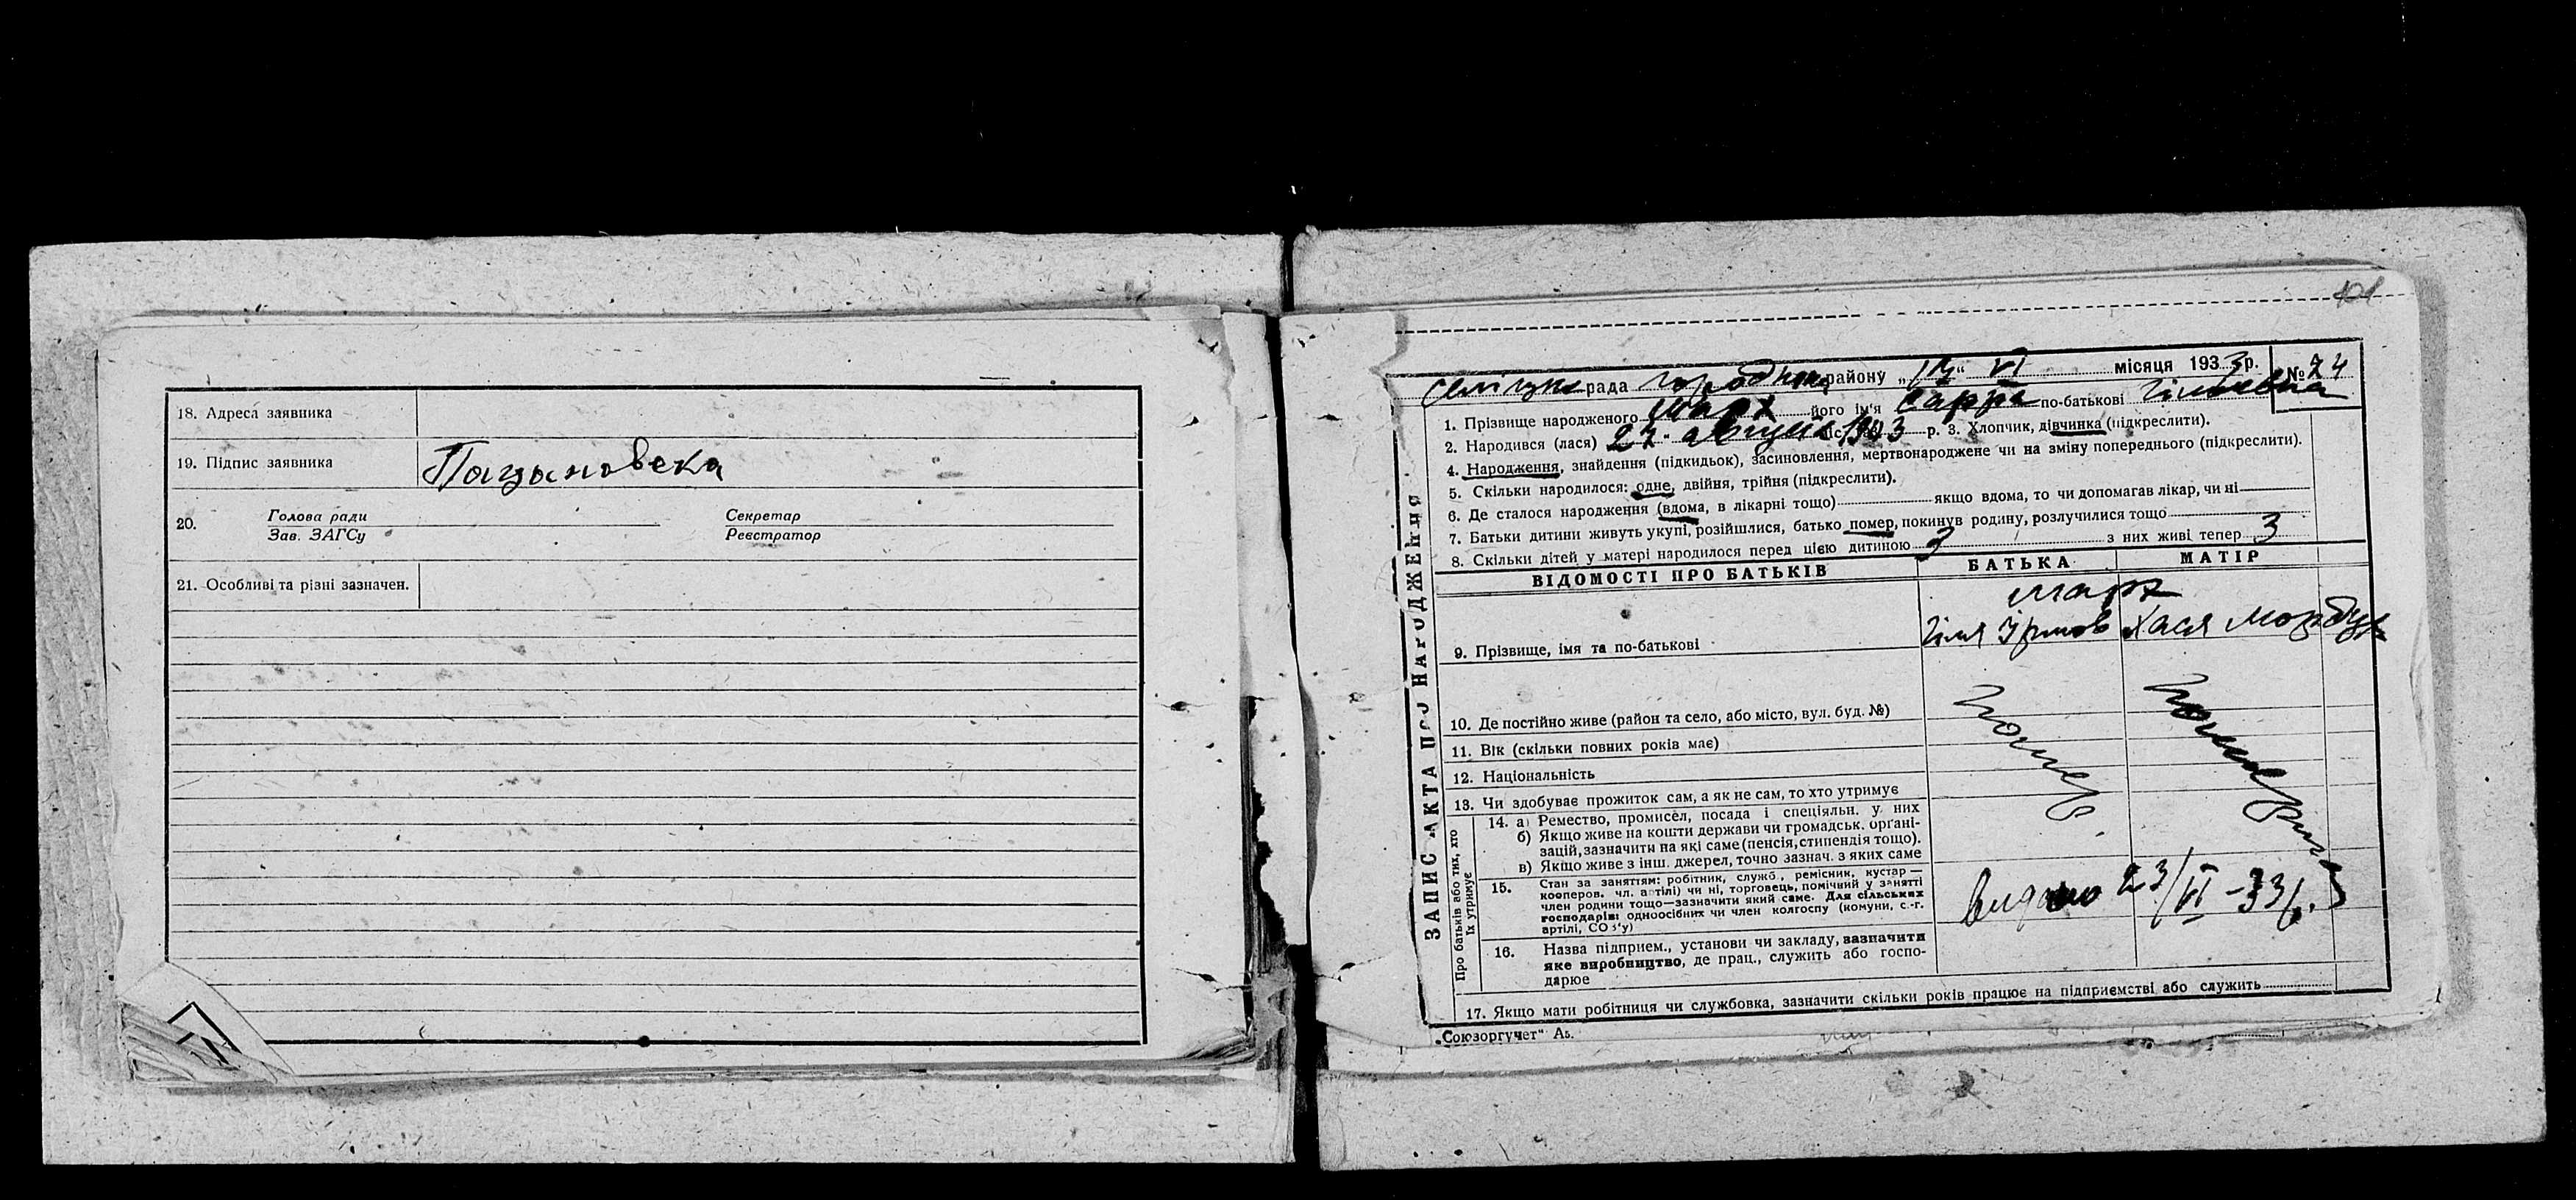 18. Адреса заявника
19. Підпис заявника
20. Голова ради Секретар
Зав. ЗАГСу Реєстратор
21. Особливі та різні зазначен.
101
рада району „17“ VI місяця 1933 р. № 74
1. Прізвище народженого його ім'я Сарра по-батькові
2. Народився (лася) 27 1903 р. 3. Хлопчик, дівчинка (підкреслити).
4. Народження, знайдення (підкидьок), засиновлення, мертвонароджене чи на зміну попереднього (підкреслити).
5. Скільки народилося: одне, двійня, трійня (підкреслити).
6. Де сталося народження (вдома, в лікарні тощо) якщо вдома, то чи допомагав лікар, чи ні
7. Батьки дитини живуть укупі, розійшлися, батько помер, покинув родину, розлучилися тощо
8. Скільки дітей у матері народилося перед цією дитиною 3 з них живі тепер 3
ЗАПИС АКТА ПРО НАРОДЖЕННЯ
ВІДОМОСТІ ПРО БАТЬКІВ БАТЬКА МАТІР
9. Прізвище, імя та по-батькові Хася
10. Де постійно живе (район та село, або місто, вул. буд. №)
11. Вік (скільки повних років має)
12. Національність
13. Чи здобуває прожиток сам, а як не сам, то хто утримує
помер.
Про батьків або тих, хто
їх утримує
14. а) Ремество, промисел, посада і спеціяльн. у них
б) Якщо живе на кошти держави чи громадськ. органі-
зацій, зазначити на які саме (пенсія, стипендія тощо).
в) Якщо живе з інш. джерел, точно зазнач. з яких саме
15. Стан за заняттям: робітник, служб., ремісник, кустар —
кооперов. чл. артілі) чи ні, торговець, помічний у занятті
член родини тощо—зазначити який саме. Для сільських
господарів: одноосібних чи член колгоспу (комуни, с.-г.
артілі, СОЗ'у)
Видано 23/VI-33 р.
16. Назва підприєм., установи чи закладу, зазначити
яке виробництво, де прац., служить або госпо-
дарює
17. Якщо мати робітниця чи службовка, зазначити скільки років працює на підприємстві або служить
„Союзоргучет“ А5.